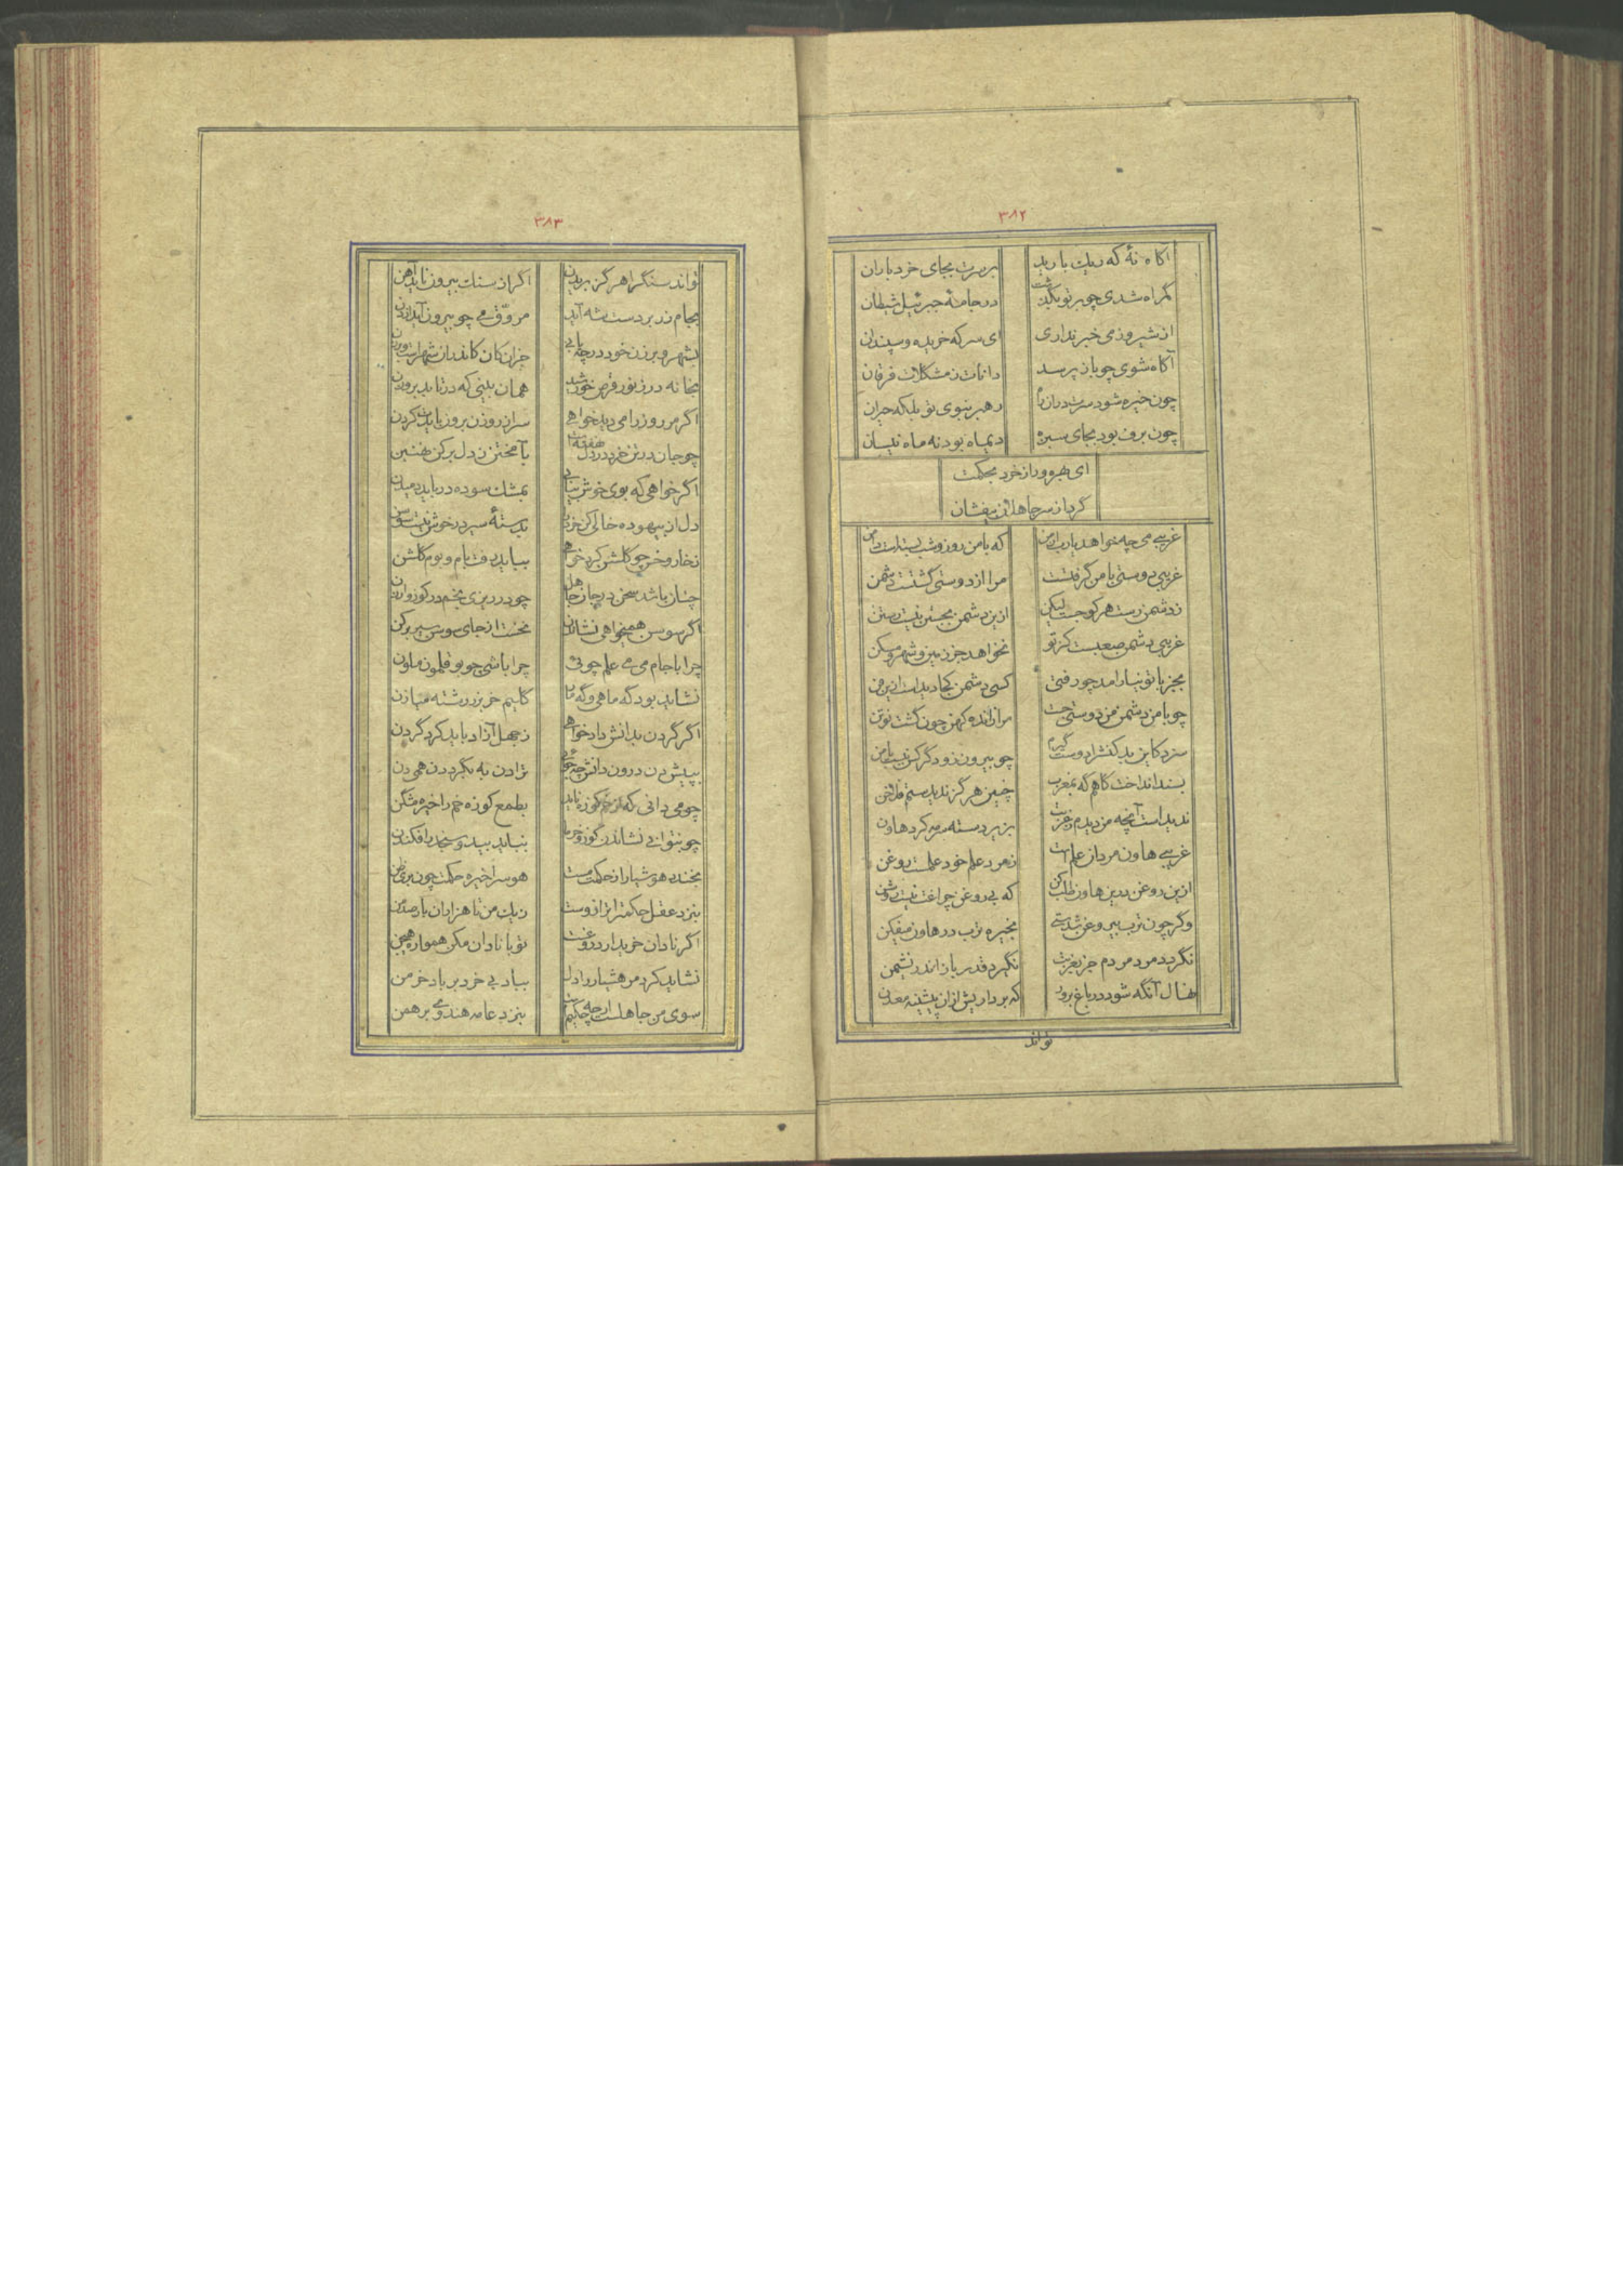 ۳۸۲
آگاه نهٔ که ریک بارید بر سرت بجای خرد باران
گمراه شدی چو بر تو بگذشت در جامهٔ جبرئیل شیطان
از شیر و ز می خبر نداری ای سرکه خریده و سپندان
آگاه شوی چو باز پرسد دانات ز مشکلات فرقان
چون خیره شود سرت در آن راه رهبر بنوی تو بلکه حیران
چون برف بود بجای سبزه دیماه بود نه ماه نیسان
ای بهره ور از خرد بحکمت
گرد از سر جاهلان بیفشان
غریبی می چه خواهد یارب از من که با من روز و شب بستست دامن
غریبی دوستی با من گرفتست مرا از دوستی گشتست دشمن
ز دشمن رست هر کو جست لیکن ازین دشمن بجستن نیست رستن
غریبی دشمن صعبست کز تو نخواهد جز زمین و شهر و مسکن
بجز با تو نیارامد چو رفتی کسی دشمن کجا دیداست ازین فن
چو با من دشمن من دوستی جست مرا ز انده کهن چون گشت نو تن
سزد کاین بد کنش را دوست گیرم چو بیرون زو دگر کس نیست با من
بسند انداخت گاهم گه بمغرب چنین هرگز ندیدستم فلاخن
ندیداست آنچه من دیدم ز غربت بزیر دسته سرمه کرد هاون
غریبی هاون مردان علم است ز مرد علم خود علمست روغن
ازین روغن درین هاون طلب کن که بی روغن چراغت نیست روشن
وگر چون ترب بیروغن شدستی بخیره ترب در هاون میفکن
نگردد مرد مردم جز بغربت نگیرد قدر باز اندر نشیمن
نهال آنگه شود در باغ برور که برداریش از آن پیشینه معدن
تواند
۳۸۳
تواند سنگ را هرگز بریدن اگر از سنک بیرون ناید آهن
بجام زر بر دست شه آید مروّق می چو بیرون آید از دن
بشهر و برزن خود در چه یابی جز آن کان کاندر آن شهرست و برزن
بخانه در ز نور قرص خورشید همان بینی که در تابد بروزن
اگر مر روز را می دید خواهی سر از روزن برون بایدت کردن
چو جان در تن خرد در دل نهفته است بآمختن ز دل بر کن هنبین
اگر خواهی که بوی خوش بیابی بمشک سوده در باید دمیدن
دل از بیهوده خالی کن خرد را بدستهٔ سیر در خوش نیست سوسن
ز خار و خس چو گلشن کرد خواهی بباید رفت بام و بوم گلشن
چنان باشد سخن در جان جاهل چو در ریزی بخم در گوز و ارزن
اگر سوسن همیخواهی نشاندن نخست از جای سوسن سیر بر کن
چرا با جام می می علم جوئی چرا باشی چو بوقلمون ملون
نشاید بود گه ماهی و گه مار گلیم خر بزر رشته میاژن
اگر گردن بدانش داد خواهی ز جهل آزاد باید کرد گردن
بپیش دن درون دانش چه جوئی ترا دن به بگرد دن همی دن
چو می دانی که از خم کوزه ناید بطمع کوزه خم را خیره مشکن
چو نتوانی نشاندن گوز و خرما نباید بید و سنجد را فکندن
بخندد هوشیار از حکمت مست هوس را خیره حکمت چون بری ظن
بنزد عقل حکمت را ترازوست زیک من تا هزاران بار صد من
اگر نادان خریدار دروغست تو با نادان مکن همواره هیچن
نشاید کرد مر هشیار را دل بباد بی خرد بر باد خرمن
سوی من جاهلست ار چه حکیمست بنزد عامه هندوئی برهمن